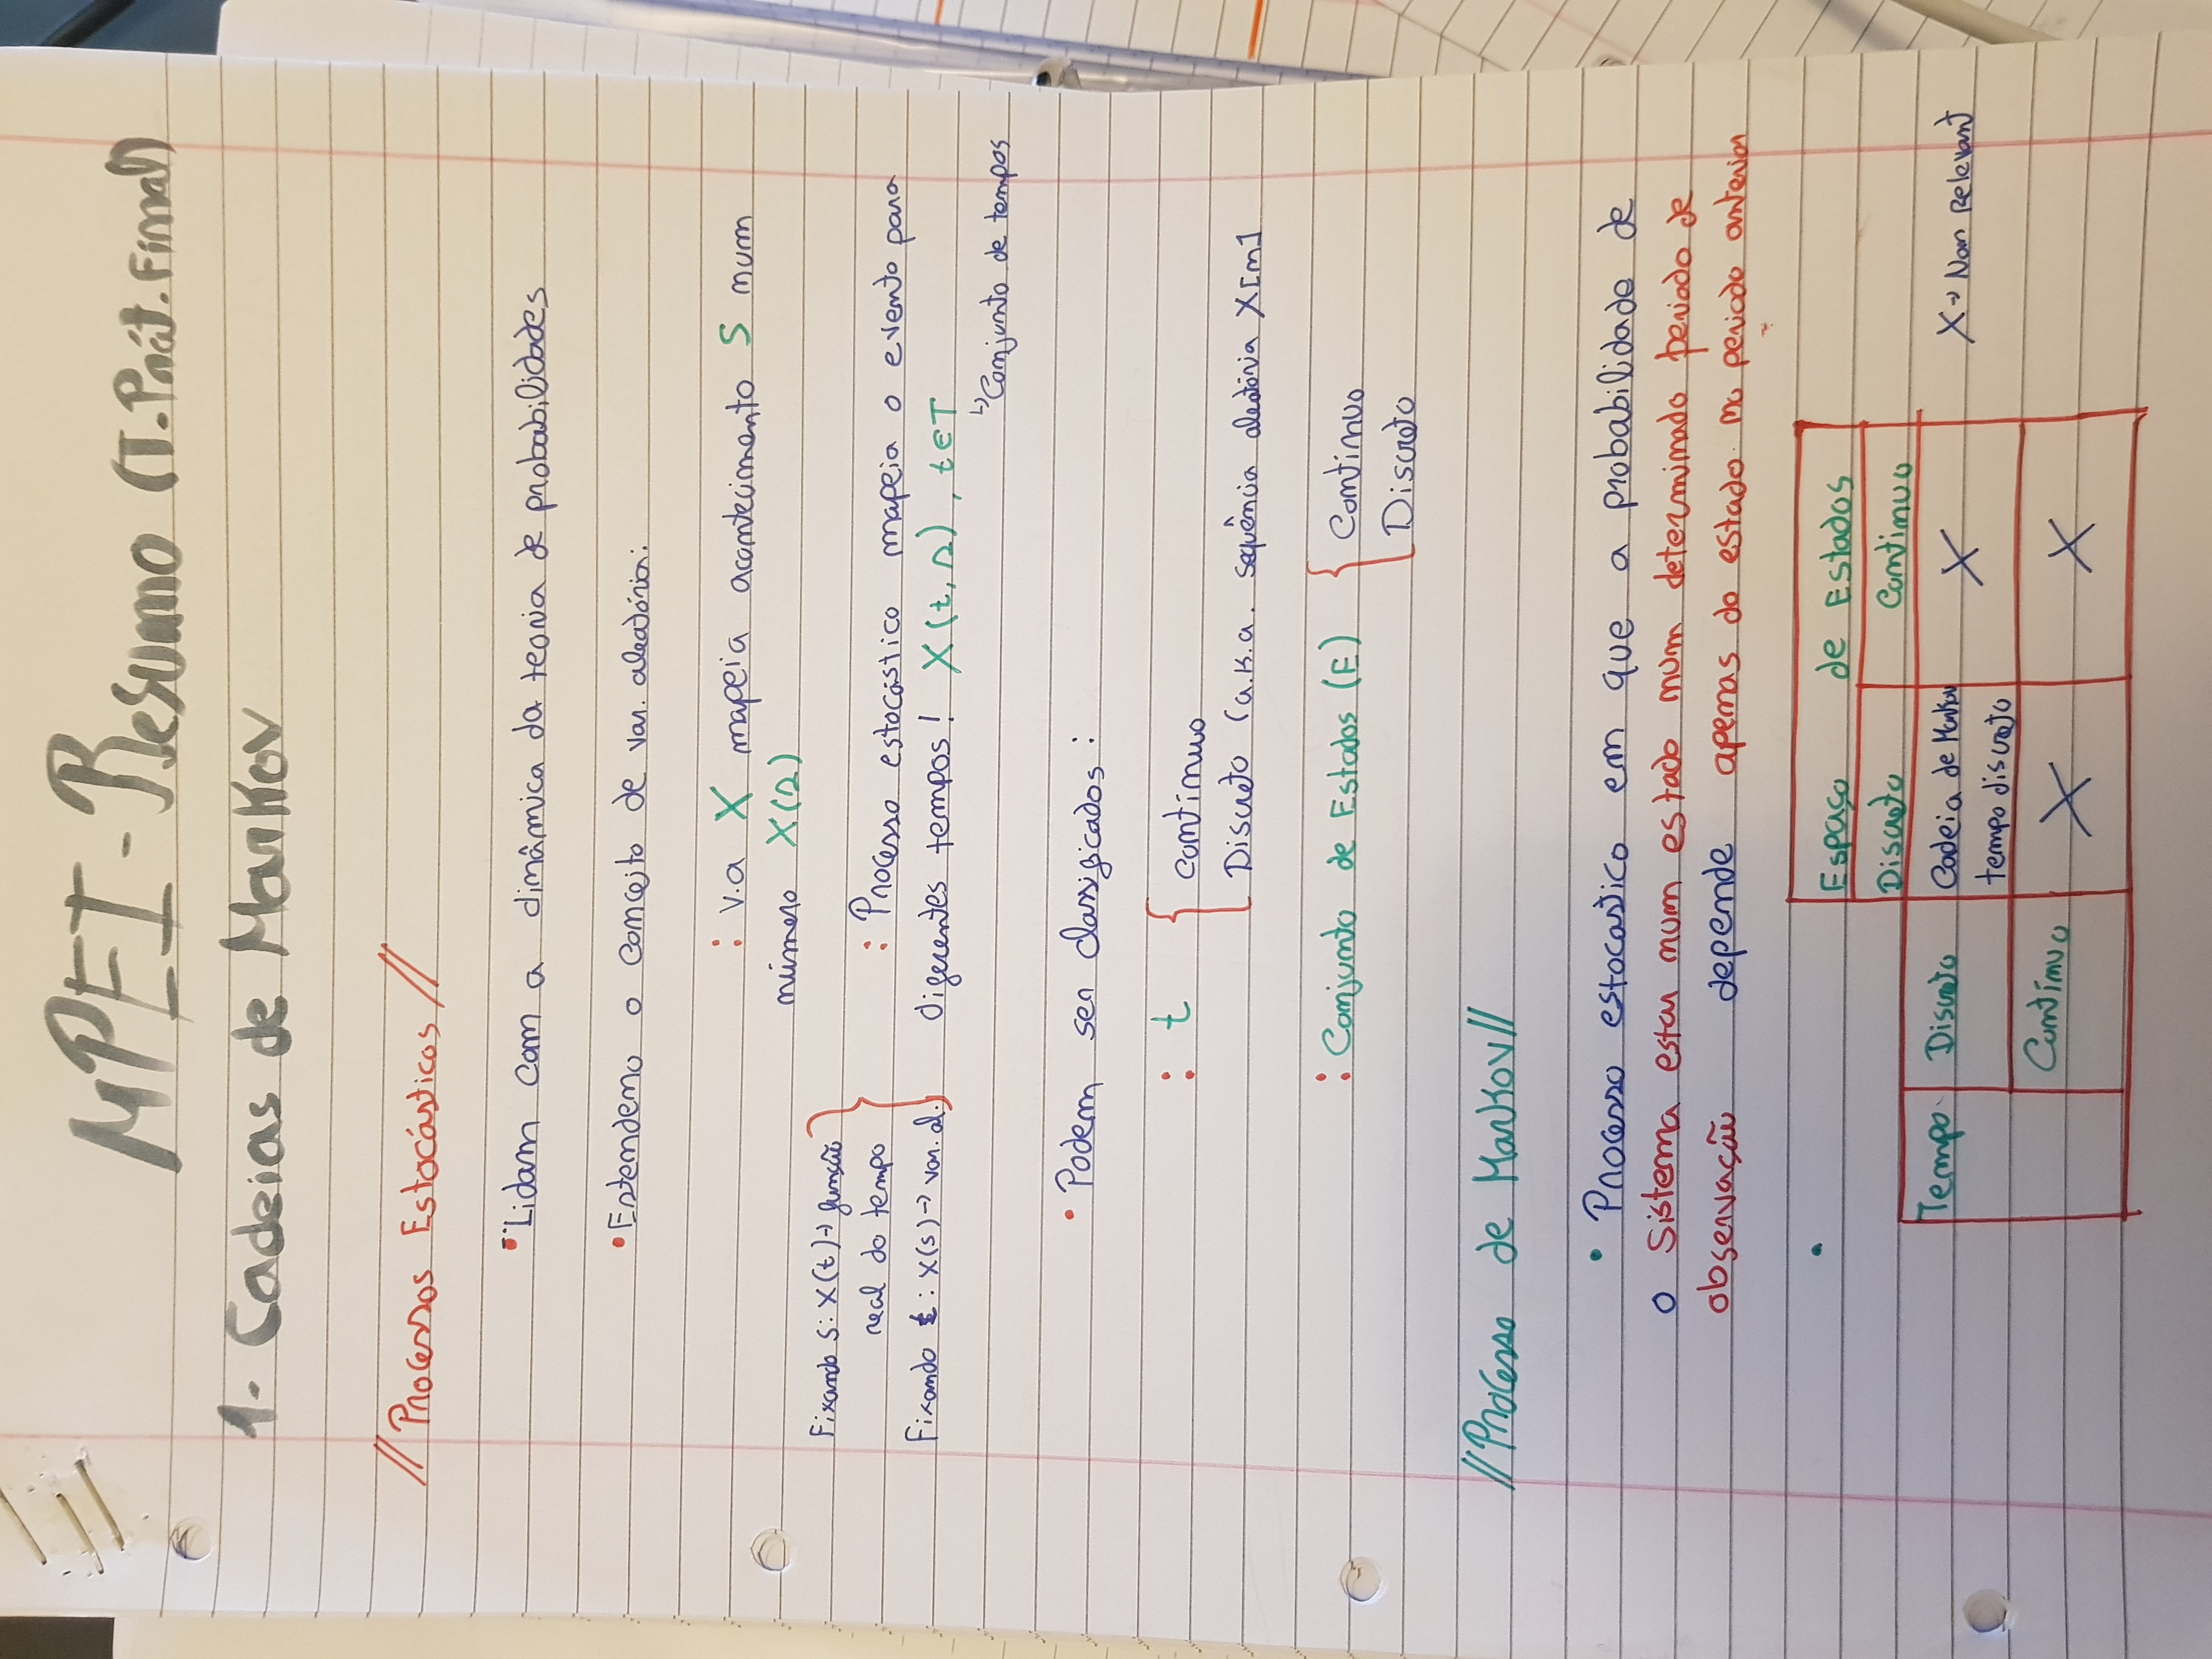 MPEI - Resumo (T. Prát. Final)
1- Cadeias de Markov
// Processos Estocásticos //
• Lidam com a dinâmica da teoria de probabilidades
• Estendemo o conceito de var. aleatória:
: v.a X mapeia acontecimento S num
número X(s)
Fixando s: X(t) → função
real do tempo
Fixando t: X(s) → var. al.
: Processo estocástico mapeia o evento para
diferentes tempos! X(t, s), t∈T
↳ Conjunto de tempos
• Podem ser classificados:
: t { contínuo
Discreto (a.k.a. sequência aleatória X[n]
: Conjunto de Estados (E) { Continuo
Discreto
// Processo de Markov //
• Processo estocastico em que a probabilidade de
o sistema estar num estado num determinado periodo de
observação depende apenas do estado no periodo anterior
•
Espaço de Estados
Discreto Continuo
Tempo Discreto Cadeia de Markov X X → Non Relevant
tempo discreto
Contínuo X X